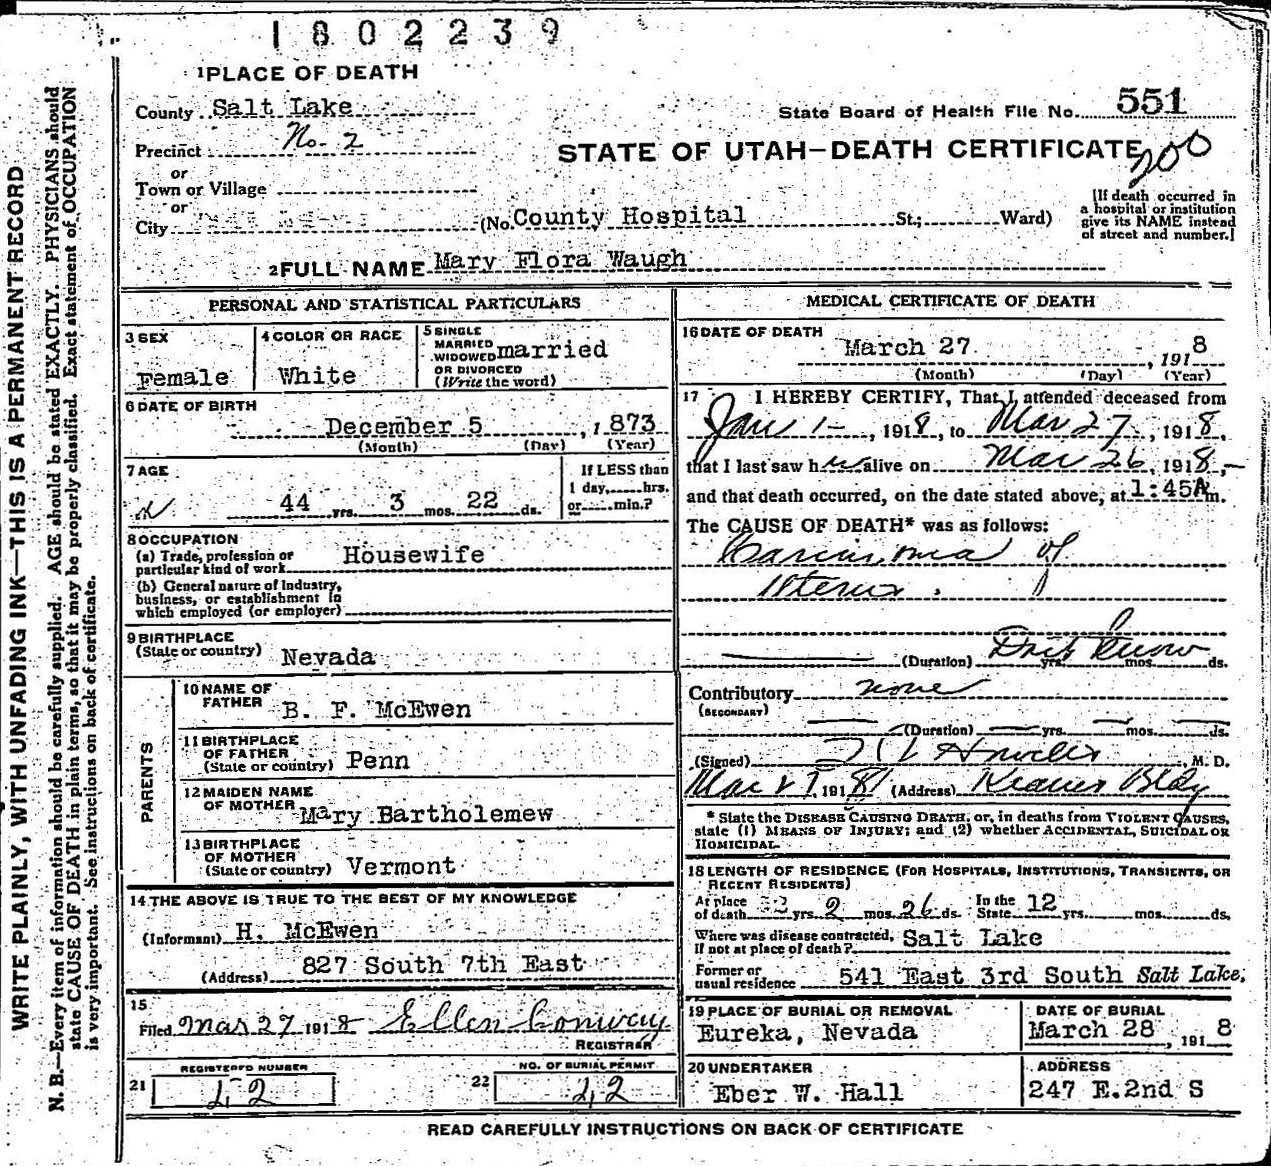 1802239
1 PLACE OF DEATH
County Salt Lake
State Board of Health File No. 551
Precinct No. 2
STATE OF UTAH—DEATH CERTIFICATE
200
or
Town or Village
or
City
(No. County Hospital St.; Ward)
[If death occurred in
a hospital or institution
give its NAME instead
of street and number.]
2 FULL NAME Mary Flora Waugh
PERSONAL AND STATISTICAL PARTICULARS
3 SEX
Female
4 COLOR OR RACE
White
5 SINGLE
MARRIED
WIDOWED married
OR DIVORCED
(Write the word)
6 DATE OF BIRTH
December 5, 1873
(Month) (Day) (Year)
7 AGE
44 yrs. 3 mos. 22 ds.
If LESS than
1 day, hrs.
or min.?
8 OCCUPATION
(a) Trade, profession or
particular kind of work Housewife
(b) General nature of Industry,
business, or establishment in
which employed (or employer)
9 BIRTHPLACE
(State or country) Nevada
PARENTS
10 NAME OF
FATHER B. F. McEwen
11 BIRTHPLACE
OF FATHER
(State or country) Penn
12 MAIDEN NAME
OF MOTHER Mary Bartholemew
13 BIRTHPLACE
OF MOTHER
(State or country) Vermont
14 THE ABOVE IS TRUE TO THE BEST OF MY KNOWLEDGE
(Informant) H. McEwen
(Address) 827 South 7th East
15
Filed Mar 27 1918 Ellen Conway
REGISTRAR
REGISTERED NUMBER
21
NO. OF BURIAL PERMIT
22
MEDICAL CERTIFICATE OF DEATH
16 DATE OF DEATH
March 27, 1918
(Month) (Day) (Year)
17 I HEREBY CERTIFY, That I attended deceased from
Jan 1-, 1918, to Mar 27, 1918,
that I last saw her alive on Mar 26, 1918,
and that death occurred, on the date stated above, at 1:45A m.
The CAUSE OF DEATH* was as follows:
Carcinoma of
Uterus.
(Duration) Don't Know yrs. mos. ds.
Contributory none
(SECONDARY)
(Duration) yrs. mos. ds.
(Signed) M. D.
Mar 27, 1918 (Address) Bldg
* State the DISEASE CAUSING DEATH, or, in deaths from VIOLENT CAUSES,
state (1) MEANS OF INJURY; and (2) whether ACCIDENTAL, SUICIDAL OR
HOMICIDAL.
18 LENGTH OF RESIDENCE (FOR HOSPITALS, INSTITUTIONS, TRANSIENTS, OR
RECENT RESIDENTS)
At place
of death yrs. 2 mos. 26 ds. In the
State 12 yrs. mos. ds.
Where was disease contracted, Salt Lake
If not at place of death?
Former or
usual residence 541 East 3rd South Salt Lake.
19 PLACE OF BURIAL OR REMOVAL
Eureka, Nevada
DATE OF BURIAL
March 28, 1918
20 UNDERTAKER
Eber W. Hall
ADDRESS
247 E.2nd S
READ CAREFULLY INSTRUCTIONS ON BACK OF CERTIFICATE
WRITE PLAINLY, WITH UNFADING INK—THIS IS A PERMANENT RECORD
N. B.—Every item of information should be carefully supplied. AGE should be stated EXACTLY. PHYSICIANS should
state CAUSE OF DEATH in plain terms, so that it may be properly classified. Exact statement of OCCUPATION
is very important. See instructions on back of certificate.